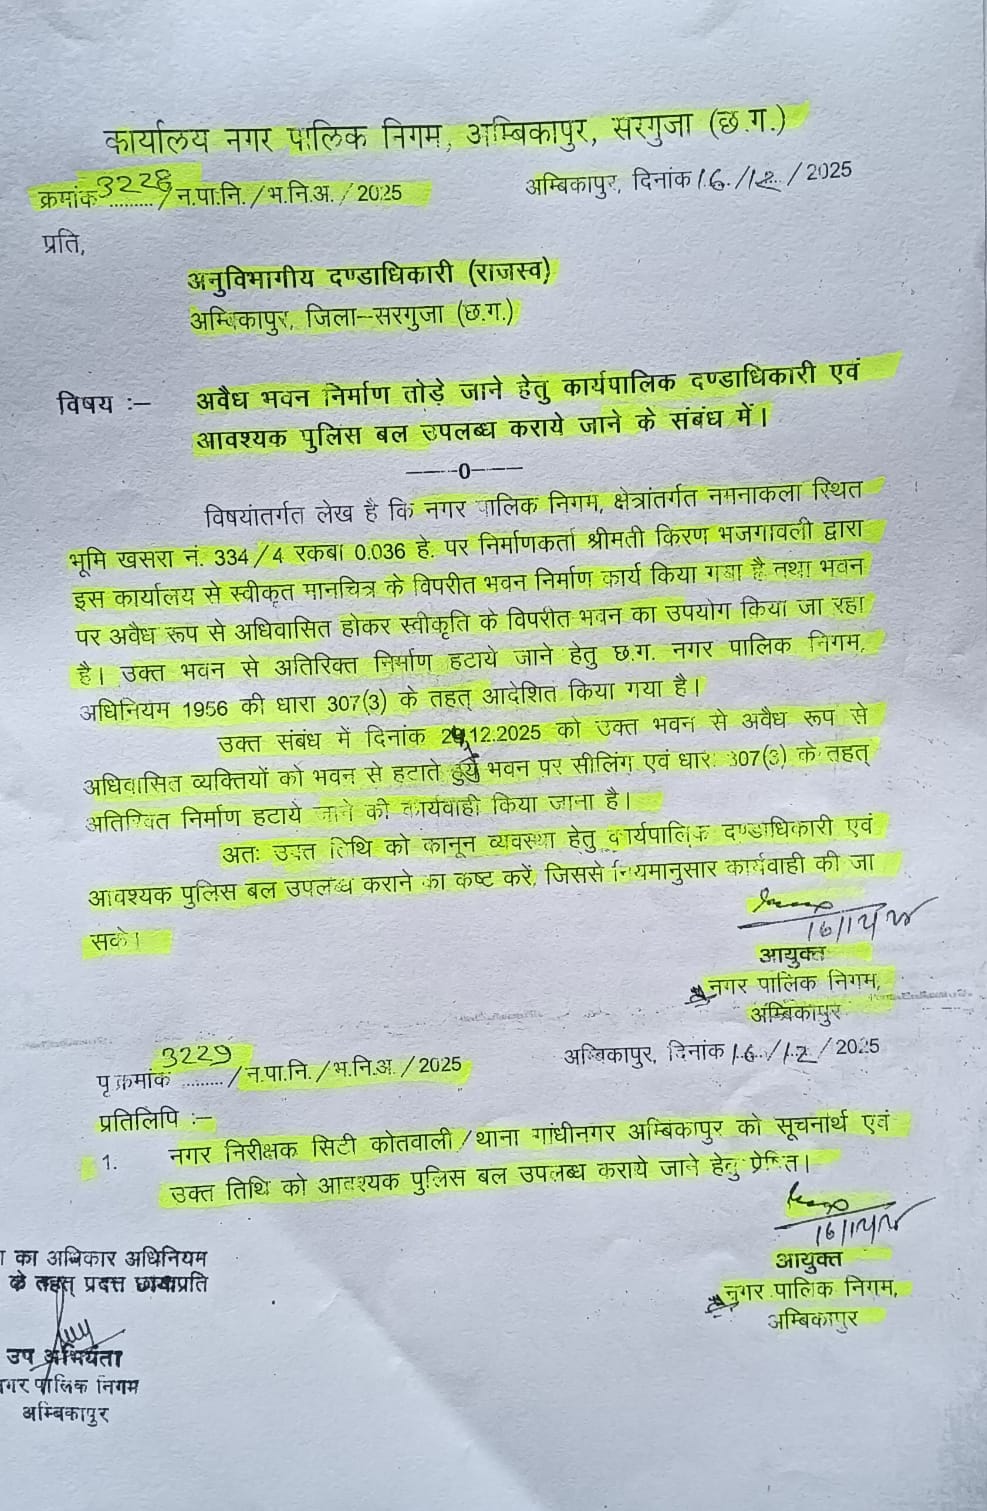 कार्यालय नगर पालिक निगम, अम्बिकापुर, सरगुजा (छ.ग.)
क्रमांक 3228 / न.पा.नि. / भ.नि.अ. / 2025
अम्बिकापुर, दिनांक 16 / 12 / 2025
प्रति,
अनुविभागीय दण्डाधिकारी (राजस्व)
अम्बिकापुर, जिला–सरगुजा (छ.ग.)
विषय :– अवैध भवन निर्माण तोड़े जाने हेतु कार्यपालिक दण्डाधिकारी एवं
आवश्यक पुलिस बल उपलब्ध कराये जाने के संबंध में।
-----0-----
विषयांतर्गत लेख है कि नगर पालिक निगम, क्षेत्रांतर्गत नमनाकला स्थित
भूमि खसरा नं. 334/4 रकबा 0.036 हे. पर निर्माणकर्ता श्रीमती किरण भजगावली द्वारा
इस कार्यालय से स्वीकृत मानचित्र के विपरीत भवन निर्माण कार्य किया गया है तथा भवन
पर अवैध रूप से अधिवासित होकर स्वीकृति के विपरीत भवन का उपयोग किया जा रहा
है। उक्त भवन से अतिरिक्त निर्माण हटाये जाने हेतु छ.ग. नगर पालिक निगम,
अधिनियम 1956 की धारा 307(3) के तहत् आदेशित किया गया है।
उक्त संबंध में दिनांक .12.2025 को उक्त भवन से अवैध रूप से
अधिवासित व्यक्तियों को भवन से हटाते हुये भवन पर सीलिंग एवं धारा 307(3) के तहत्
अतिरिक्त निर्माण हटाये जाने की कार्यवाही किया जाना है।
अतः उक्त तिथि को कानून व्यवस्था हेतु कार्यपालिक दण्डाधिकारी एवं
आवश्यक पुलिस बल उपलब्ध कराने का कष्ट करें, जिससे नियमानुसार कार्यवाही की जा
सके।
16/12/25
आयुक्त
नगर पालिक निगम,
अम्बिकापुर
पृ.क्रमांक 3229 / न.पा.नि. / भ.नि.अ. / 2025
अम्बिकापुर, दिनांक 16 / 12 / 2025
प्रतिलिपि :–
1. नगर निरीक्षक सिटी कोतवाली/थाना गांधीनगर अम्बिकापुर को सूचनार्थ एवं
उक्त तिथि को आवश्यक पुलिस बल उपलब्ध कराये जाने हेतु प्रेषित।
16/12/25
आयुक्त
नगर पालिक निगम,
अम्बिकापुर
का अधिकार अधिनियम
के तहत् प्रदत्त छायाप्रति
उप अभियंता
नगर पालिक निगम
अम्बिकापुर